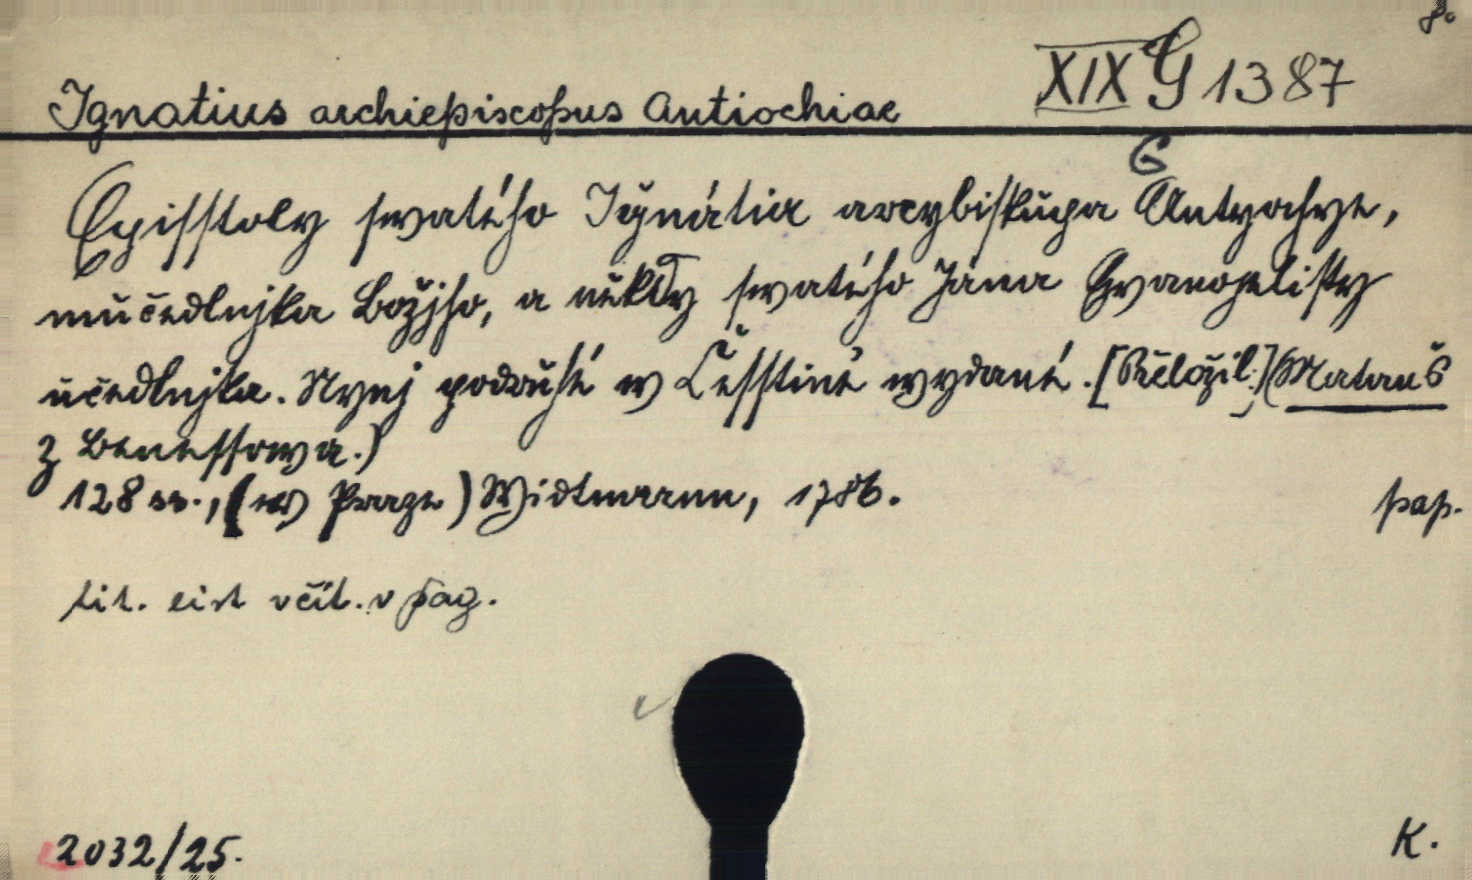 8°
XIX G 1387
Ignatius archiepiscopus Antiochiae
G
Episstoly swatého Ignátia arcybiskupa Antyochye,
mučedlnjka Božjho, a někdy swatého Jana Ewangelisty
učedlnjka. Nynj podruhé w Česstině wydané. [Přeložil.] (Matauš
z Benessowa.)
128 ss., (w Praze) Widtmann, 1786. pap.
tit. list včít. v pag.
2032/25. K.